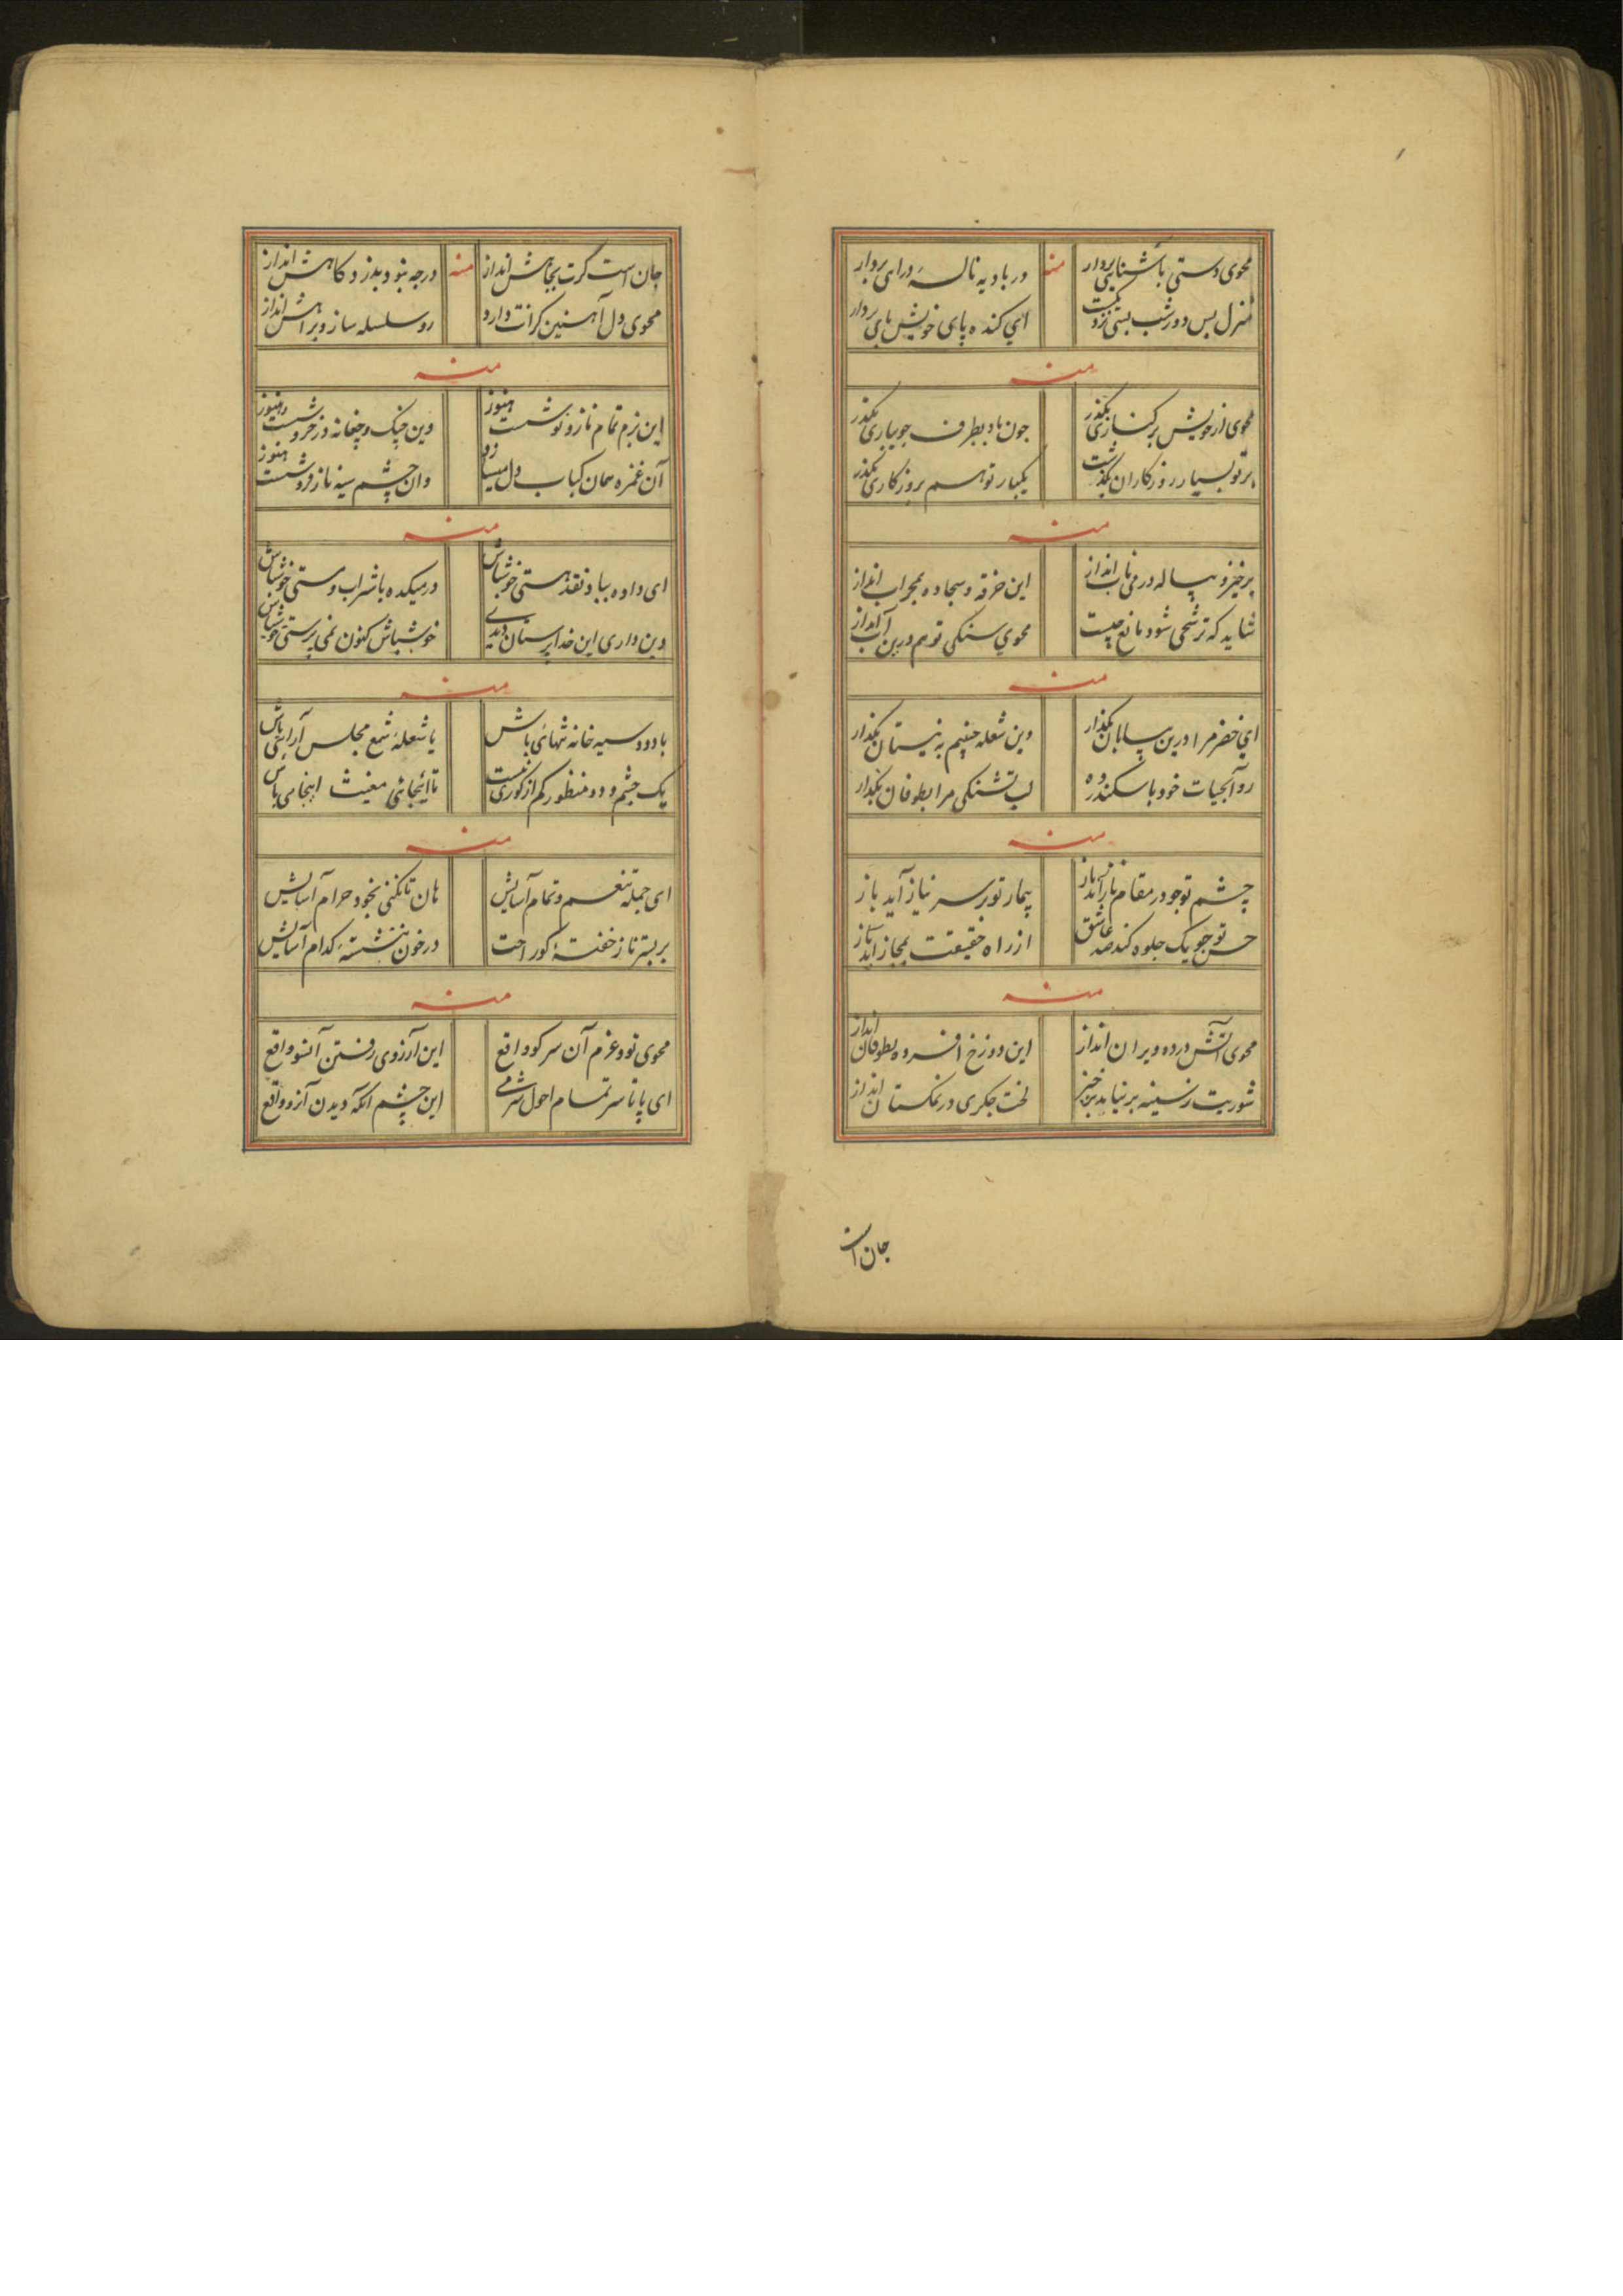 محوی دستی باشنایی بردار منه در بادیه ناله درای بردار
منزل بس دور شب بستی نزدیکست ای کنده پای خویش پای بردار
منه
محوی ز خویش بر کناری بگذر چون باد بطرف جویباری بگذر
بر تو بسیار روزکاران بگذشت یکبار تو هم بروزکاری بگذر
منه
برخیز و پیاله در می ناب انداز این خرقه و سجاده بمحراب انداز
شاید که ترشحی شود مانع چیست محوی سنکی تو هم درین آب انداز
منه
ای خضر مرا درین بیابان بگذار وین شعله خیم به نیستان بگذار
رو آبحیات خود باسکندر ده لب تشنکی مرا بطوفان بگذار
منه
چشم تو چو در مقام ناز آید باز بیمار تو بر سر نیاز آید باز
حسن تو چو یک جلوه کند صد عاشق از راه حقیقت بمجاز آید باز
منه
محوی آتش درده ویران انداز این دوزخ افسرده بطوفان انداز
شوریت ز سینه بر نیاید برخیز لخت جکری در نمکستان انداز
جان است
جان است کرت بجاهش انداز منه ورجه نبود بدزد کاهش انداز
محوی دل آهنین کرانت دارد رو سلسله ساز و براهش انداز
منه
این بزم تمام ناز و نوشست هنوز وین چنک و چغانه در خروشست هنوز
آن غمزه همان کباب دل میسازد وان چشم سیه ناز فروشست هنوز
منه
ای داده بباد نقد هستی خوشباش در میکده با شراب و مستی خوشباش
دین داری این خدا پرستان دیدی خوشباش کنون نمی پرستی خوشباش
منه
با دود سیه خانه شبهای باش یا شعله شمع مجلس آرایی باش
یک چشم و دو منظور کم از کوری نیست تا اینجائی مغیث اینجایی باش
منه
ای جمله تنعم و تمام آسایش هان تا نکنی بخود حرام آسایش
بر بستر ناز خفته کو راحت در خون ننشسته کدام آسایش
منه
محوی تو و عزم آن سر کو واقع این آرزوی رفتن آنسو واقع
ای پا تا سر تمام احول شرمی این چشم انکه دیدن آن رو واقع